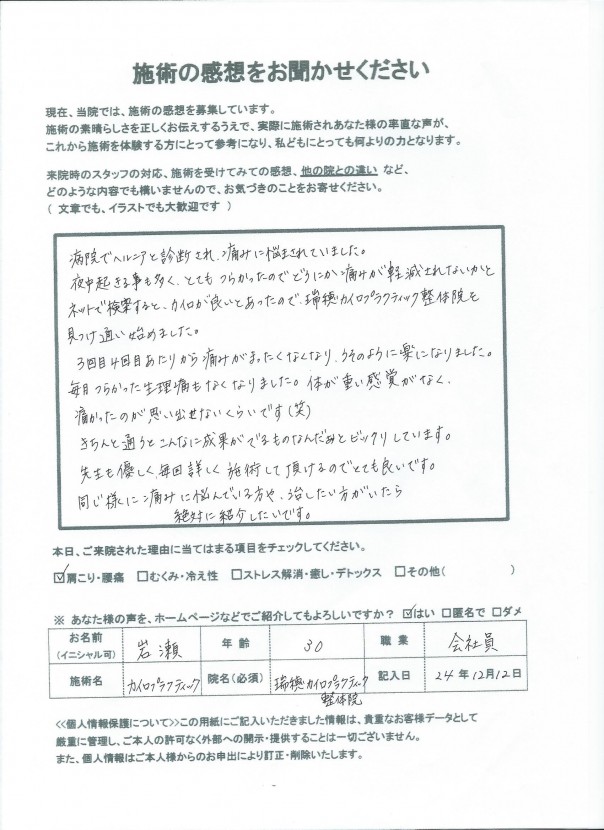 施術の感想をお聞かせください
現在、当院では、施術の感想を募集しています。
施術の素晴らしさを正しくお伝えするうえで、実際に施術されあなた様の率直な声が、
これから施術を体験する方にとって参考になり、私どもにとっても何よりの力となります。
来院時のスタッフの対応、施術を受けてみての感想、他の院との違い など、
どのような内容でも構いませんので、お気づきのことをお寄せください。
( 文章でも、イラストでも大歓迎です )
病院でヘルニアと診断され、痛みに悩まされていました。
夜中起きる事も多く、とてもつらかったのでどうにか痛みが軽減されないかと
ネットで検索すると、カイロが良いとあったので、瑞穂カイロプラクティック整体院を
見つけ通い始めました。
3回目4回目あたりから痛みがまったくなくなり、うそのように楽になりました。
毎月つらかった生理痛もなくなりました。体が重い感覚がなく、
痛かったのが思い出せないくらいです(笑)
きちんと通うとこんなに成果がでるものなんだぁとビックリしています。
先生も優しく毎回詳しく施術して頂けるのでとても良いです。
同じ様に痛みに悩んでいる方や、治したい方がいたら
絶対に紹介したいです。
本日、ご来院された理由に当てはまる項目をチェックしてください。
☑肩こり・腰痛 □むくみ・冷え性 □ストレス解消・癒し・デトックス □その他( )
※ あなた様の声を、ホームページなどでご紹介してもよろしいですか? ☑はい □匿名で □ダメ
お名前 (イニシャル可) 岩瀬 年 齢 30 職 業 会社員
施術名 カイロプラクティック 院名(必須) 瑞穂カイロプラクティック 整体院 記入日 24年12月12日
<<個人情報保護について>>この用紙にご記入いただきました情報は、貴重なお客様データとして
厳重に管理し、ご本人の許可なく外部への開示・提供することは一切ございません。
また、個人情報はご本人様からのお申出により訂正・削除いたします。